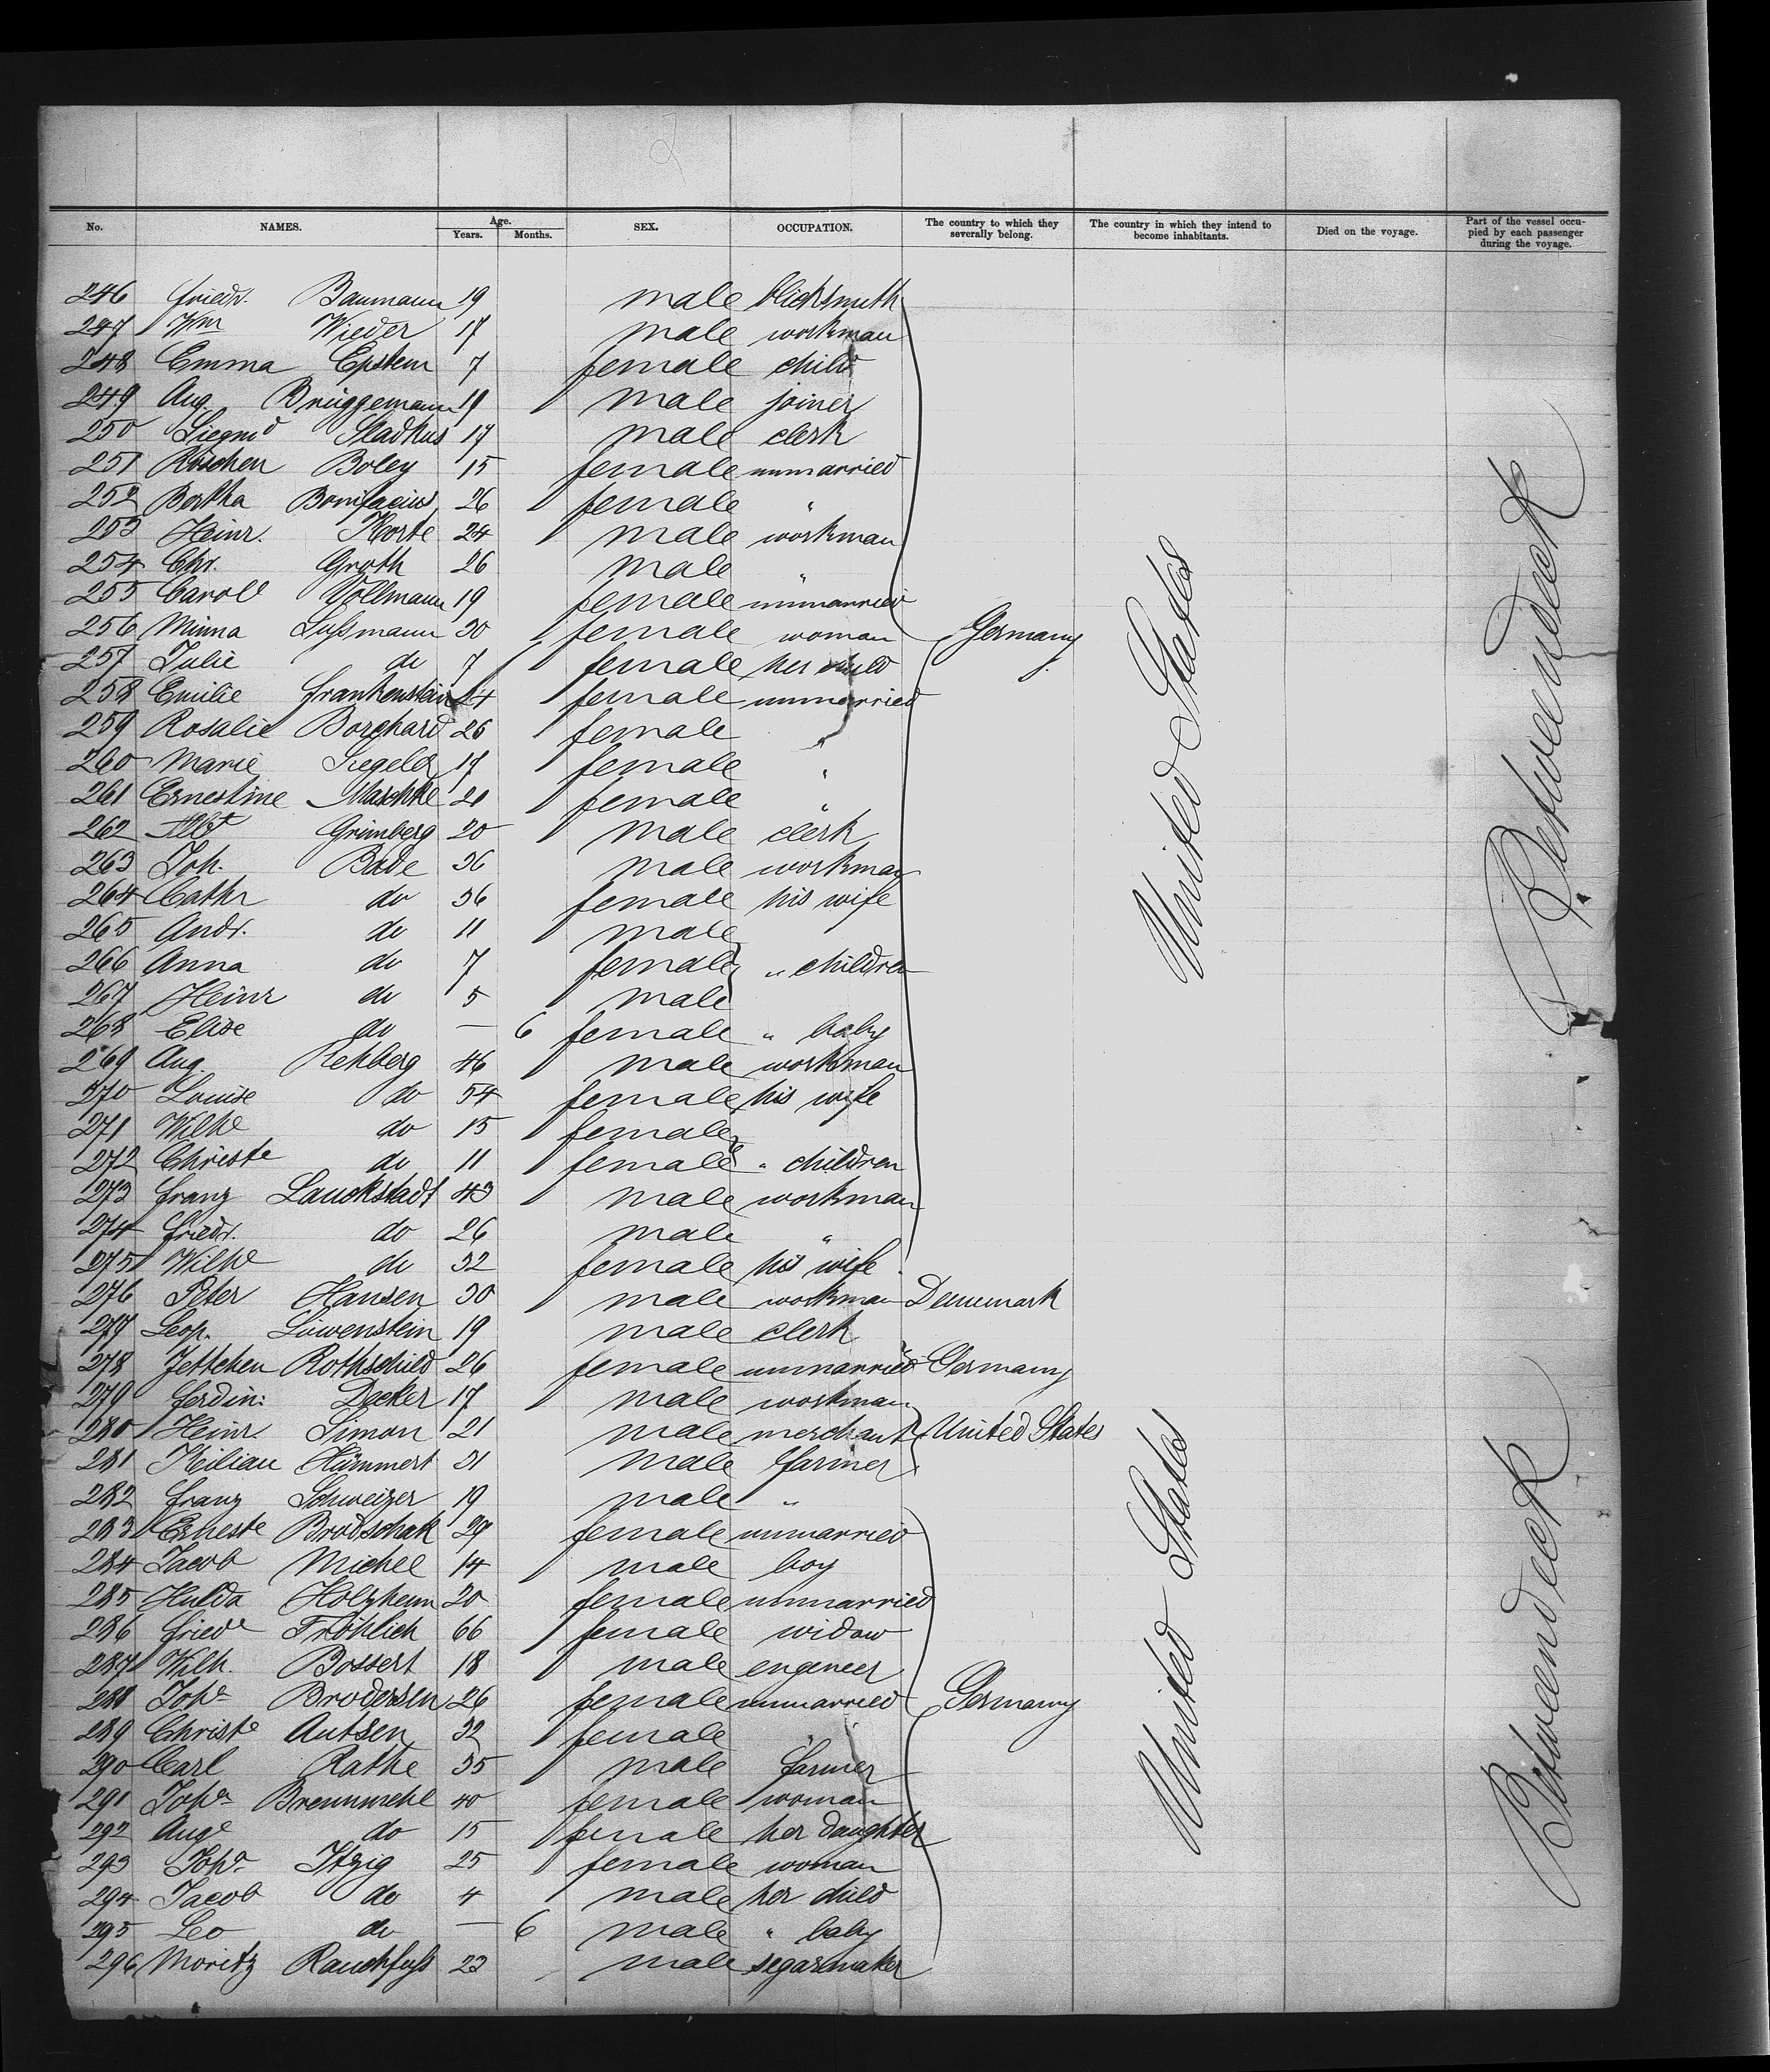 2
No. NAMES. Age. Years. Months. SEX. OCCUPATION. The country to which they severally belong. The country in which they intend to become inhabitants. Died on the voyage. Part of the vessel occupied by each passenger during the voyage.
246 Friedr. Baumann 19 male blicksmith
247 Wm Wieder 17 male workman
248 Emma Epstein 7 female child
249 Aug. Brüggemann 19 male joiner
250 Siegmd Sladkus 17 male clerk
251 Röschen Boley 15 female unmarried
252 Bertha Bonifacius 26 female "
253 Heinr. Korte 24 male workman
254 Chr. Groth 26 male "
255 Carol Vollmann 19 female unmarried
256 Minna Lussmann 30 female woman Germany
257 Julie do 7 female her child
258 Emilie Frankenstein 24 female unmarried
259 Rosalie Borchard 26 female "
260 Marie Siegeler 17 female "
261 Ernestine Maschke 21 female "
262 Albt Grünberg 20 male clerk
263 Joh. Bade 36 male workman
264 Cathr do 36 female his wife
265 Andr. do 11 male
266 Anna do 7 female " children
267 Heinr do 5 male
268 Elise do — 6 female " baby
269 Aug. Rehberg 46 male workman
270 Louise do 54 female his wife
271 Wilhe do 15 female
272 Christe do 11 female " children
273 Franz Lauckstadt 43 male workman
274 Friedr. do 26 male "
275 Wilhe do 32 female his wife
276 Peter Hansen 30 male workman Dennemark
277 Leop. Löwenstein 19 male clerk
278 Jettchen Rothschild 26 female unmarried Germany
279 Ferdin: Decker 17 male workman
280 Heinr. Simon 21 male merchant United States
281 Kilian Hümmert 31 male farmer
282 Franz Schweizer 19 male "
283 Erneste Brodschak 29 female unmarried
284 Jacob Michel 14 male boy
285 Hulda Holzheim 20 female unmarried
286 Friede Fröhlich 66 female widow
287 Wilh. Bossert 18 male engeneer
288 Joha Brodersen 26 female unmarried Germany
289 Christe Autsen 32 female "
290 Carl Rathe 35 male farmer
291 Joha Brennmehl 40 female woman
292 Auge do 15 female her daughter
293 Joha Itzig 25 female woman
294 Jacob do 4 male her child
295 Leo do — 6 male " baby
296 Moritz Rauchfuss 23 male segarmaker
United States
Betweendeck
United States
Betweendeck